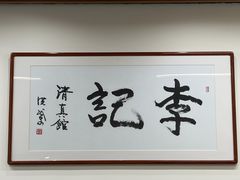 李記
清真館